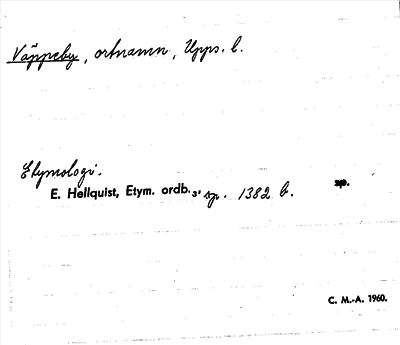 Väppeby, ortnamn, Upps. l.
Etymologi.
E. Hellquist, Etym. ordb.³, sp. 1382 b. sp.
C. M.-A. 1960.